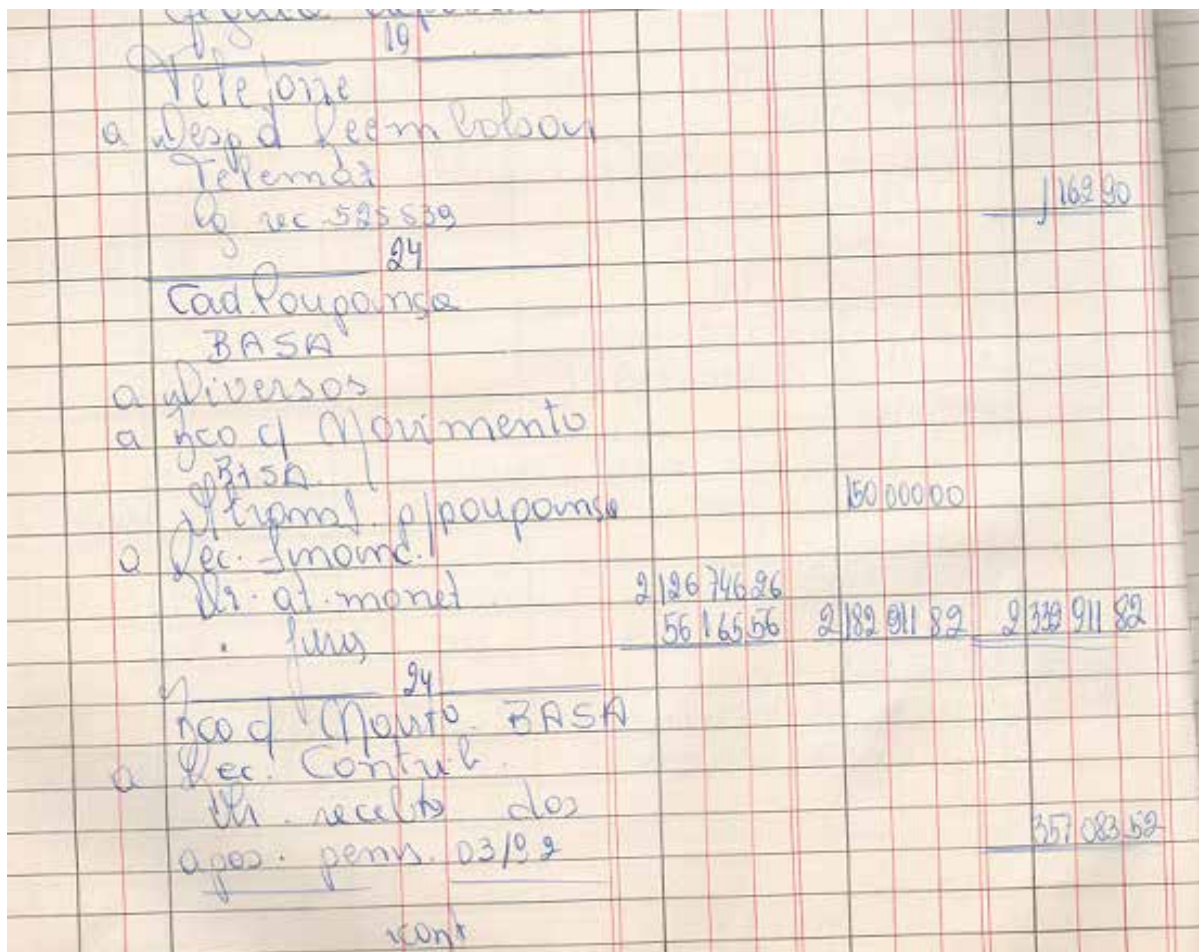 19
Telefone
a Desp d Reembolsou
Telemat
Pg rec 525539 1 162 90
24
Cad Poupança
BASA
a Diversos
a Bco c/ Movimento
BASA
p/poupança 150 000 00
a Rec. Financ.
Vlr. at. monet 2 126 746 26
" Juros 56 165 56 2 182 911 82 2 332 911 82
24
Bco c/ Movto. BASA
a Rec. Contrib.
Vlr. recebto dos
apos. pens. 03/92 357 083 52
cont